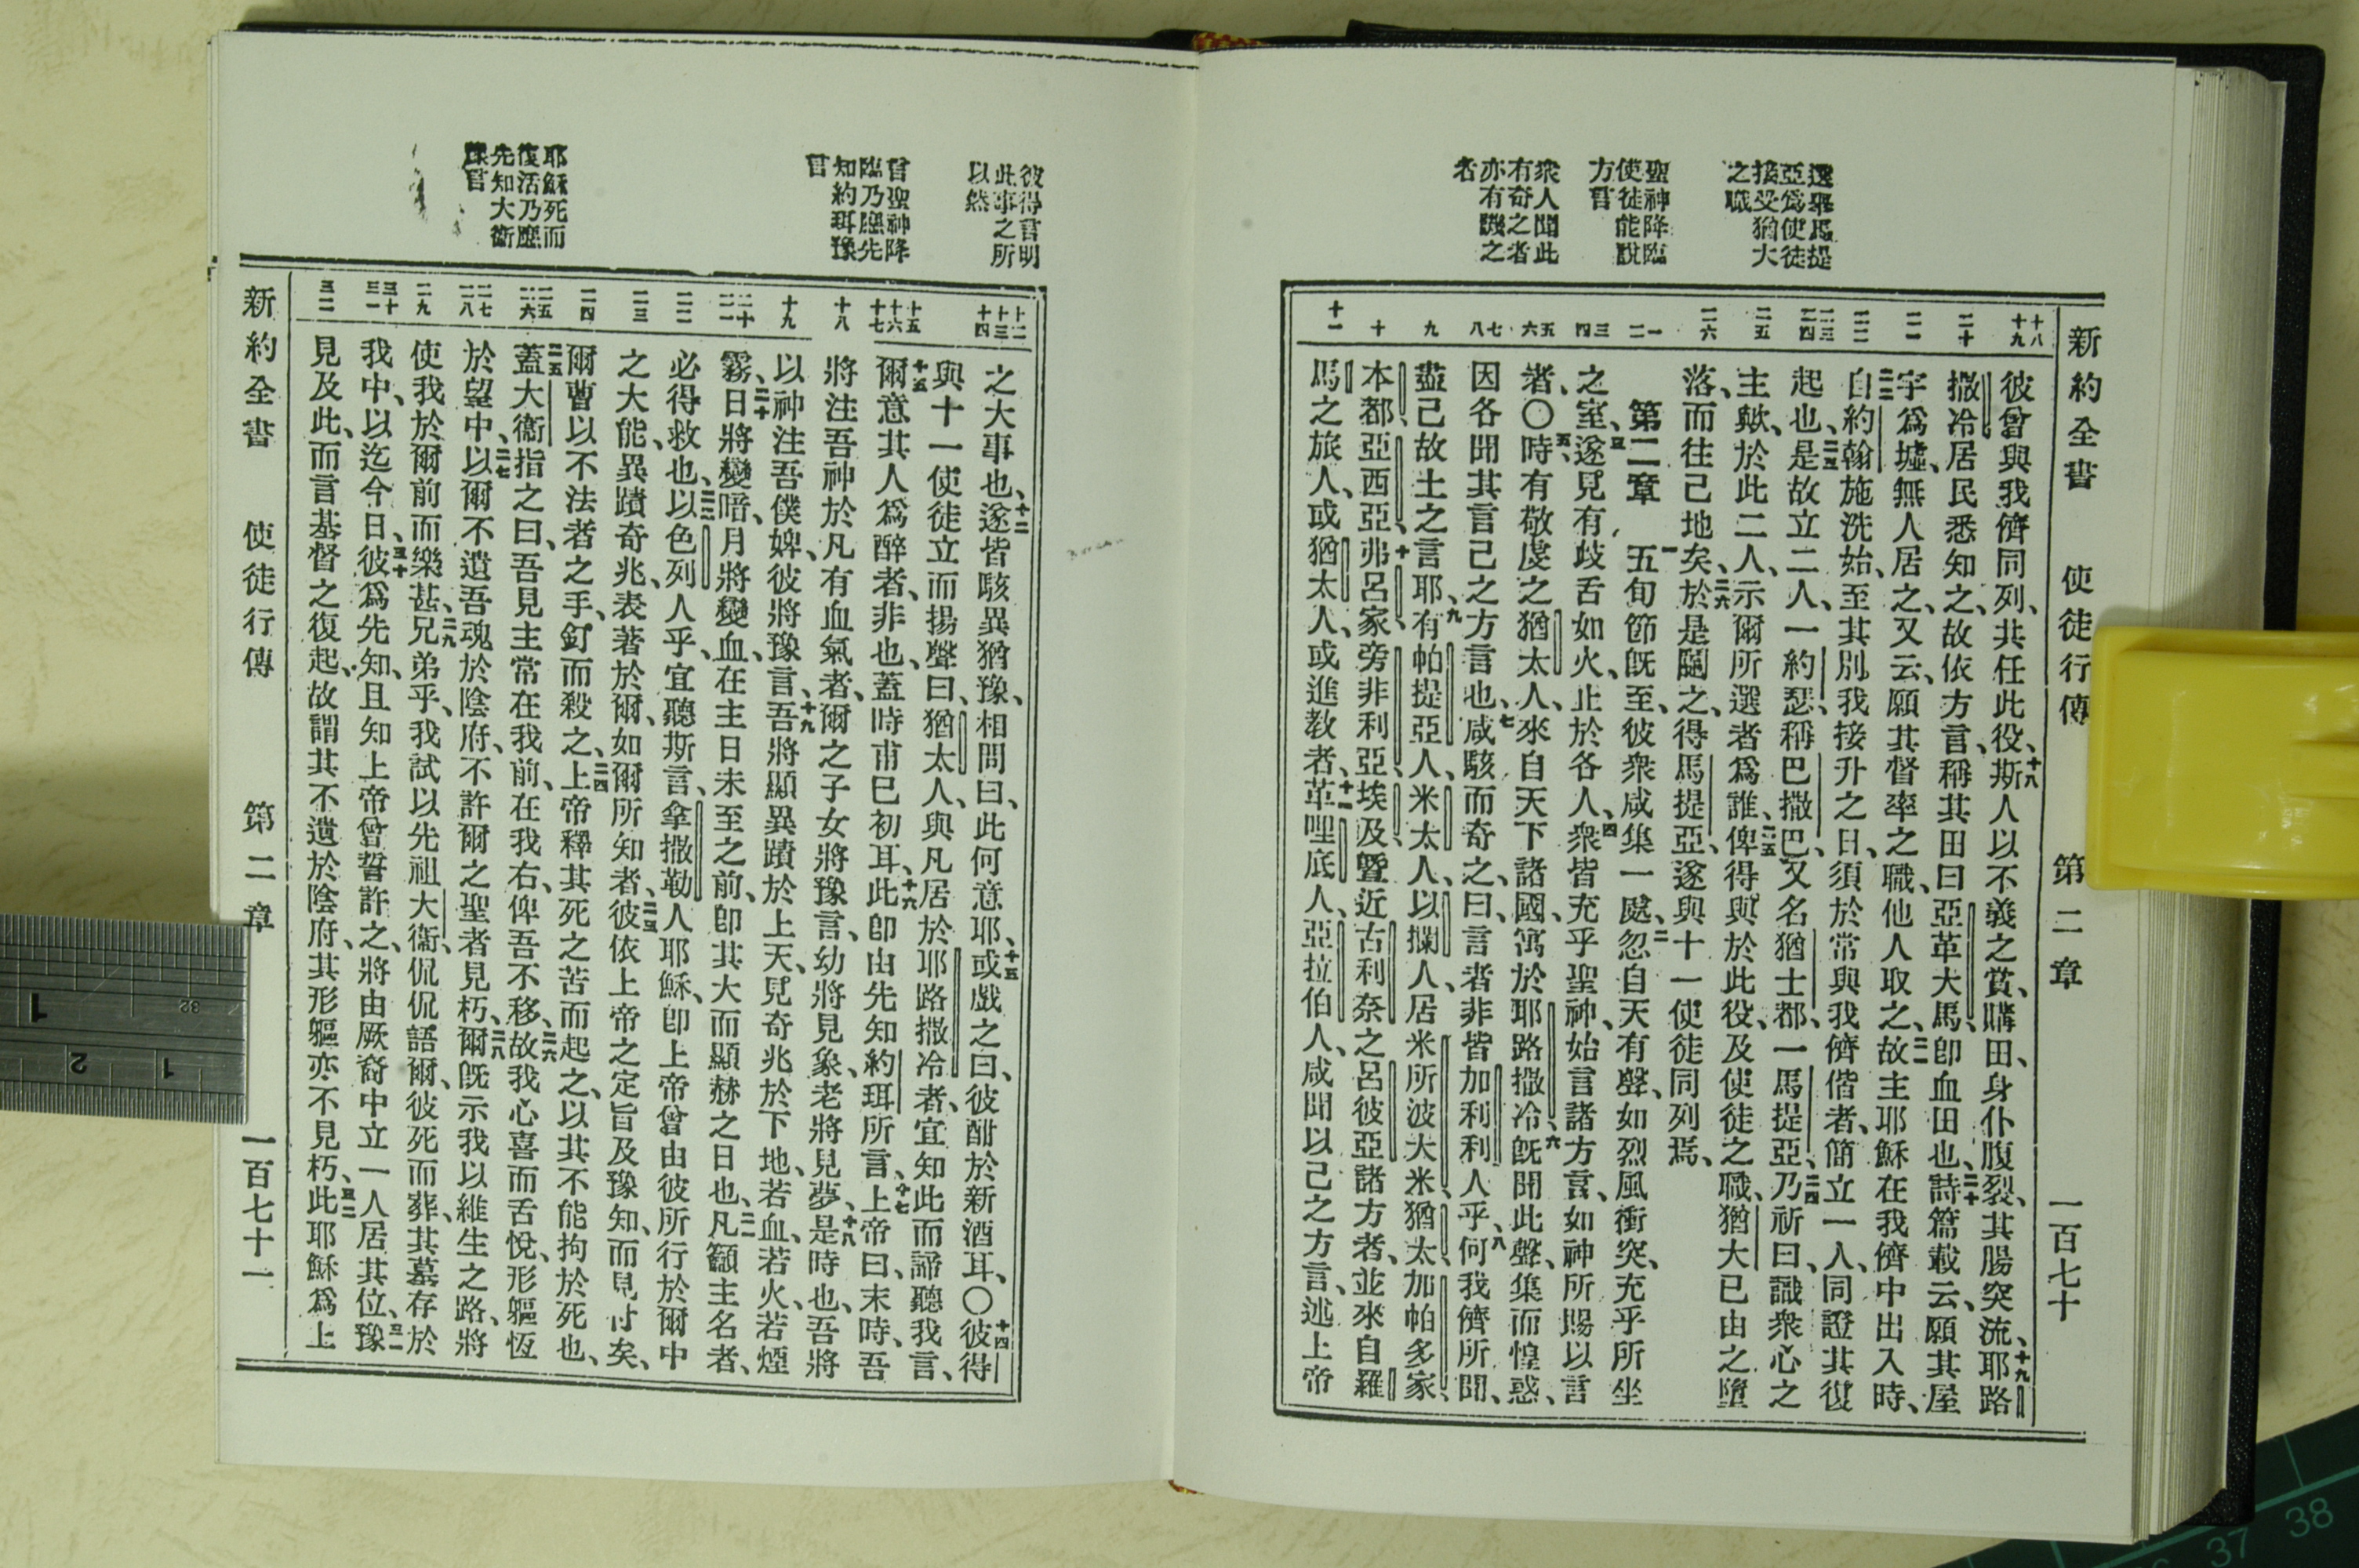 新約全書 使徒行傳 第二章 一百七十
選舉馬提
亞爲使徒
接受猶大
之職
聖神降臨
使徒能說
方言
衆人聞此
有奇之者
亦有譏之
者
十八
十九
二十
二一
二二
二三
二四
二五
二六
一
二
三
四
五
六
七
八
九
十
十一
彼曾與我儕同列、共任此役、十八斯人以不義之賞、購田、身仆腹裂、其腸突流、十九耶路
撒冷居民悉知之、故依方言、稱其田曰亞革大馬、卽血田也、二十詩篇載云、願其屋
宇爲墟、無人居之、又云、願其督率之職、他人取之、二一故主耶穌在我儕中出入時、
二二自約翰施洗始、至其別我接升之日、須於常與我儕偕者、簡立一人、同證其復
起也、二三是故立二人、一約瑟、稱巴撒巴、又名猶士都、一馬提亞、二四乃祈曰、識衆心之
主歟、於此二人、示爾所選者爲誰、二五俾得與於此役、及使徒之職、猶大已由之墮
落、而往己地矣、二六於是鬮之、得馬提亞、遂與十一使徒同列焉、
第二章 一五旬節旣至、彼衆咸集一處、二忽自天有聲、如烈風衝突、充乎所坐
之室、三遂見有歧舌如火、止於各人、四衆皆充乎聖神、始言諸方言、如神所賜以言
者、〇五時有敬虔之猶太人、來自天下諸國、寓於耶路撒冷、六旣聞此聲、集而惶惑、
因各聞其言己之方言也、七咸駭而奇之、曰、言者非皆加利利人乎、八何我儕所聞、
盡己故土之言耶、九有帕提亞人、米太人、以攔人、居米所波大米、猶太、加帕多家、
本都、亞西亞、十弗呂家、旁非利亞、埃及、曁近古利奈之呂彼亞諸方者、並來自羅
馬之旅人、或猶太人、或進教者、十一革哩底人、亞拉伯人、咸聞以己之方言、述上帝
彼得言明
此事之所
以然
言聖神降
臨乃應先
知約珥豫
言
耶穌死而
復活乃應
先知大衛
豫言
十二
十三
十四
十五
十六
十七
十八
十九
二十
二一
二二
二三
二四
二五
二六
二七
二八
二九
三十
三一
三二
之大事也、十二遂皆駭異猶豫、相問曰、此何意耶、十三或戲之曰、彼酣於新酒耳、〇十四彼得
與十一使徒立而揚聲曰、猶太人、與凡居於耶路撒冷者、宜知此而諦聽我言、
十五爾意其人爲醉者、非也、蓋時甫巳初耳、十六此卽由先知約珥所言、十七上帝曰、末時、吾
將注吾神於凡有血氣者、爾之子女將豫言、幼將見象、老將見夢、十八是時也、吾將
以神注吾僕婢、彼將豫言、十九吾將顯異蹟於上天、見奇兆於下地、若血、若火、若煙
霧、二十日將變暗、月將變血、在主日未至之前、卽其大而顯赫之日也、二一凡籲主名者、
必得救也、二二以色列人乎、宜聽斯言、拿撒勒人耶穌、卽上帝曾由彼所行於爾中
之大能、異蹟奇兆、表著於爾、如爾所知者、二三彼依上帝之定旨及豫知、而見付矣、
爾曹以不法者之手、釘而殺之、二四上帝釋其死之苦而起之、以其不能拘於死也、
二五蓋大衛指之曰、吾見主常在我前、在我右、俾吾不移、二六故我心喜而舌悅、形軀恆
於望中、二七以爾不遺吾魂於陰府、不許爾之聖者見朽、二八爾旣示我以維生之路、將
使我於爾前而樂甚、二九兄弟乎、我試以先祖大衞、侃侃語爾、彼死而葬、其墓存於
我中、以迄今日、三十彼爲先知、且知上帝曾誓許之、將由厥裔中立一人居其位、三一豫
見及此、而言基督之復起、故謂其不遺於陰府、其形軀亦不見朽、三二此耶穌爲上
新約全書 使徒行傳 第二章 一百七十一
1
2
1
32
37
38